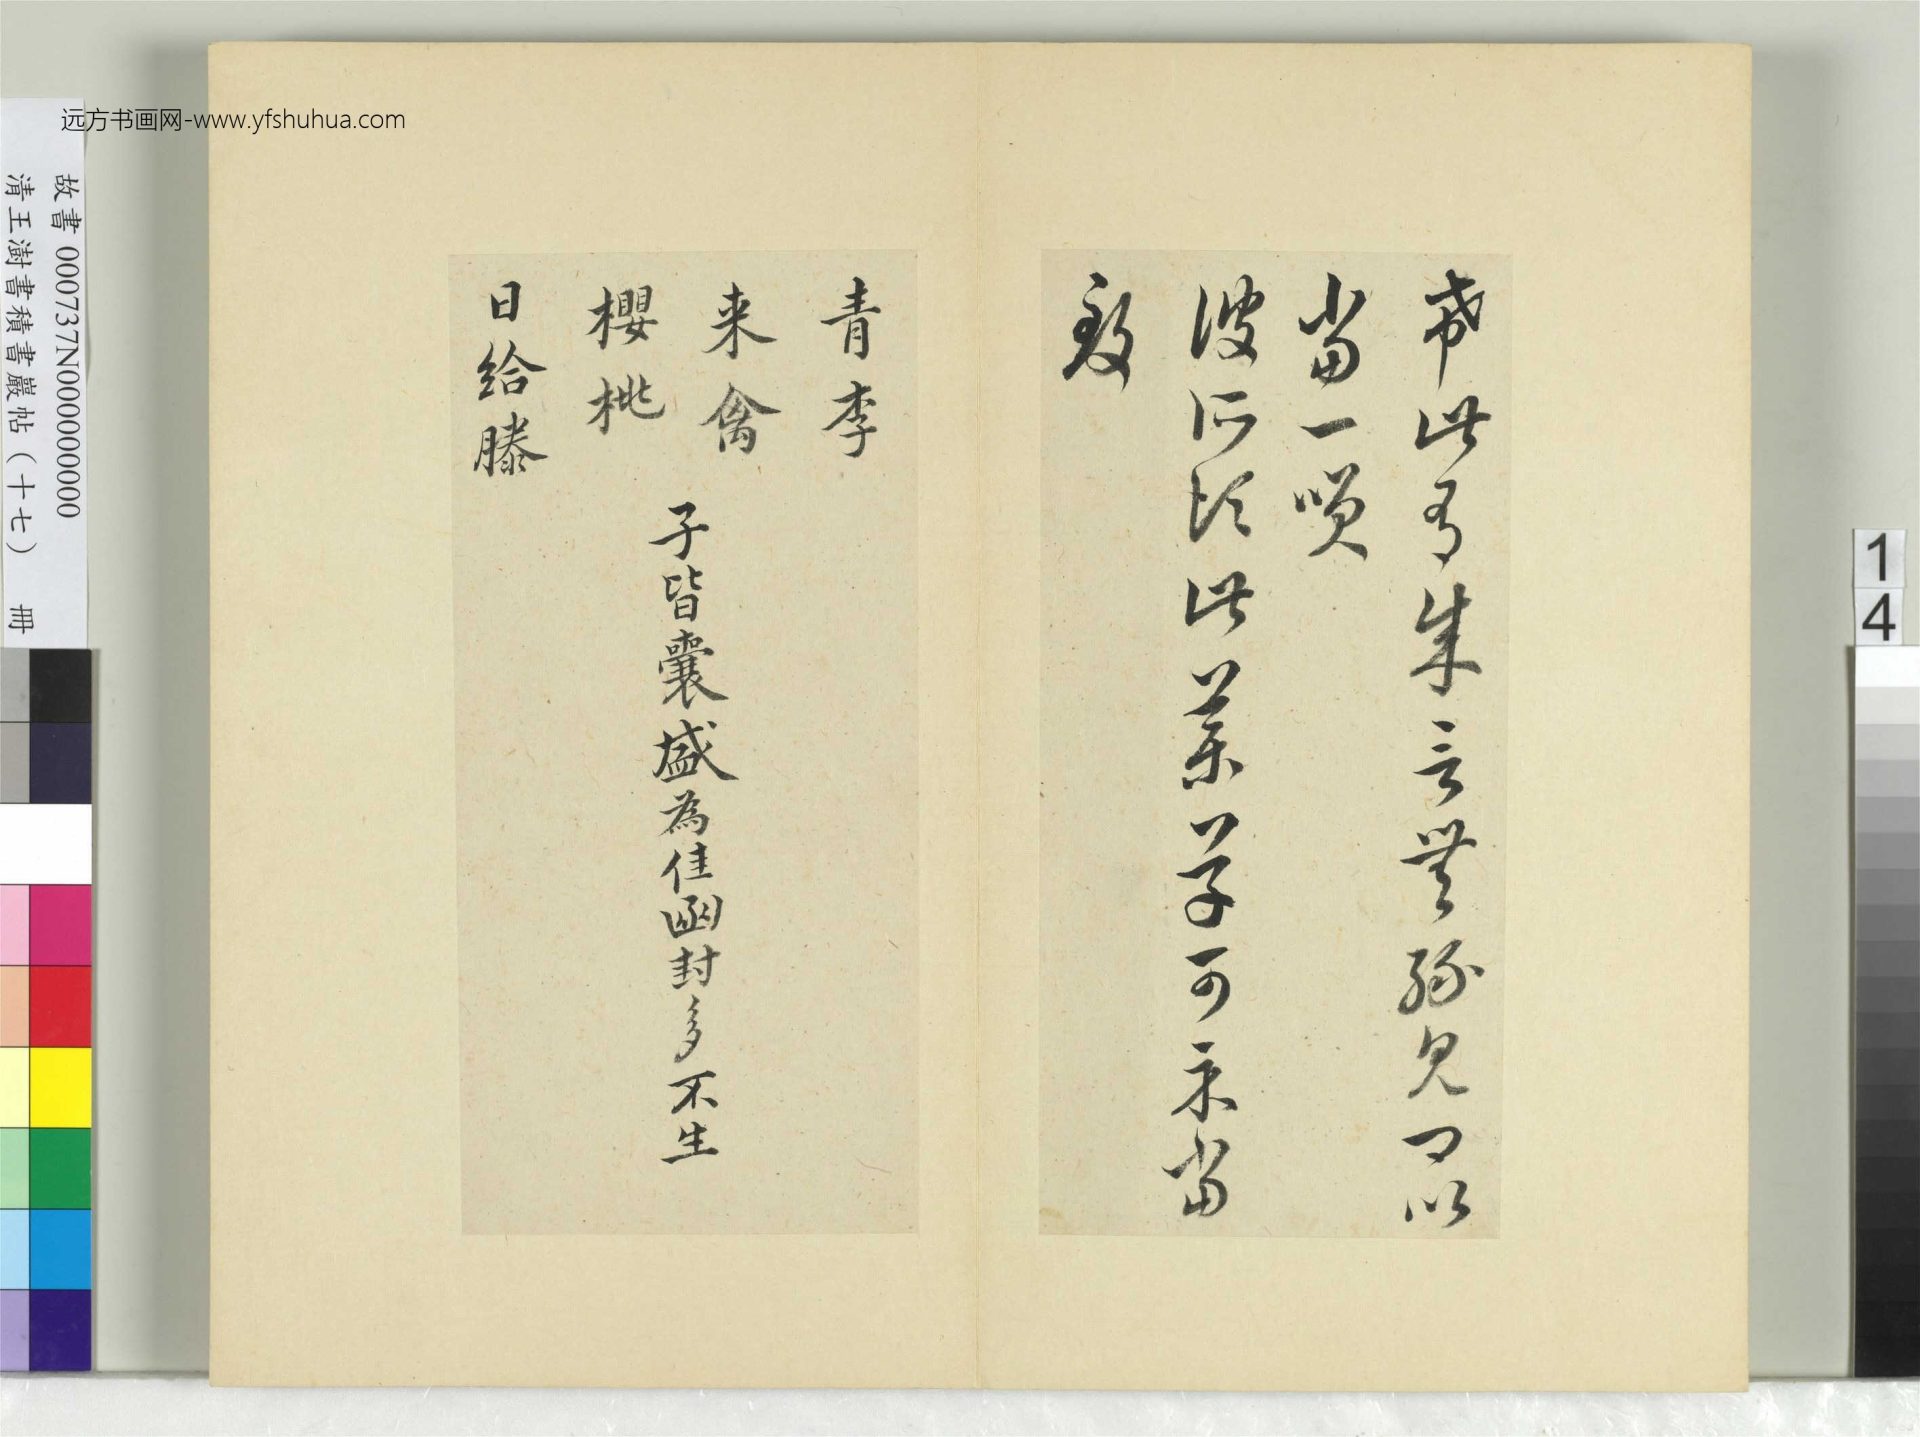 远方书画网-www.yfshuhua.com
故書 000737N000000000
清王澍書積書巖帖（十七） 冊
14
希此有成言無緣見卿以
當一咲
彼所須此藥草可示當
致
青李
来禽
櫻桃
日給滕
子皆囊盛為佳函封多不生